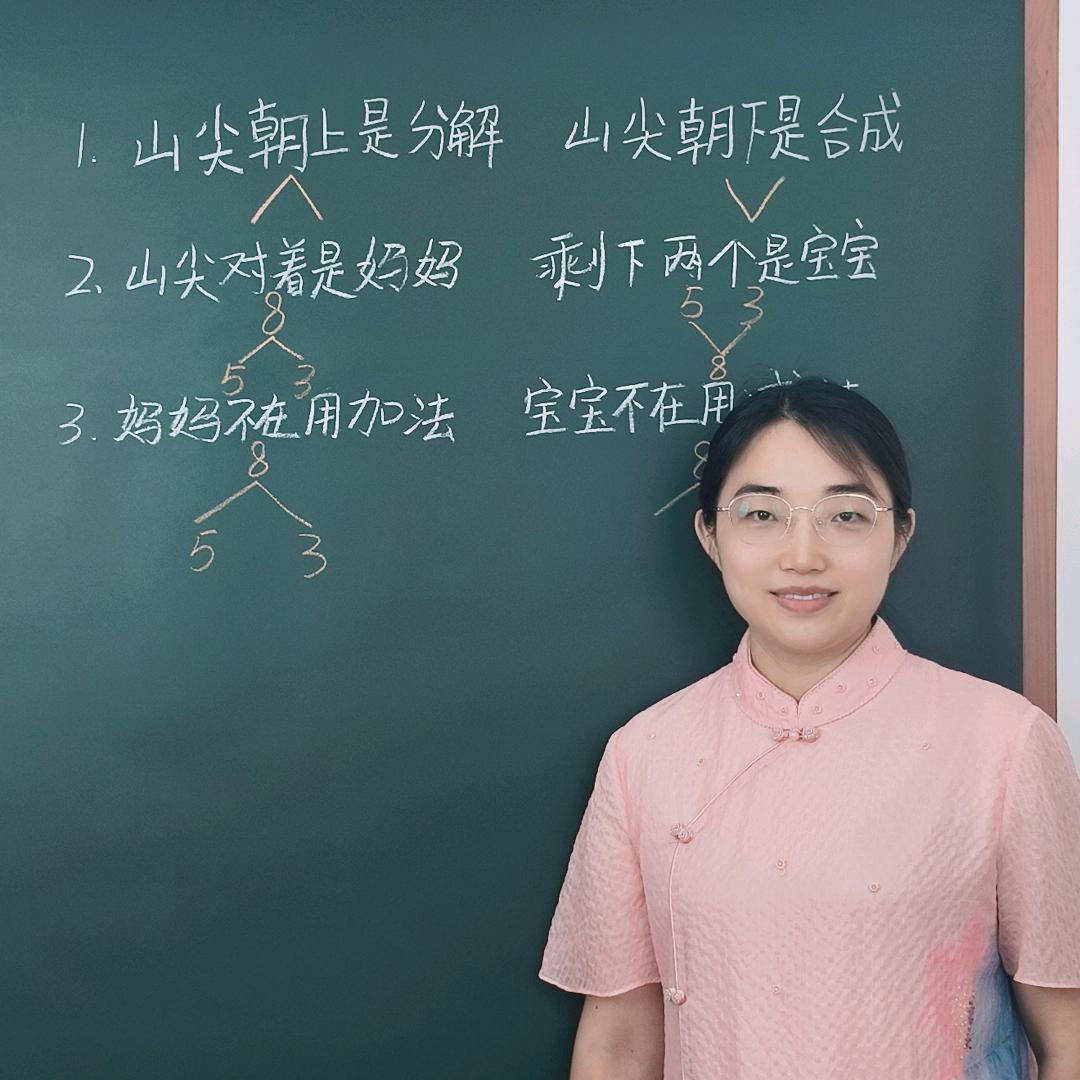 1. 山尖朝上是分解 山尖朝下是合成
2. 山尖对着是妈妈 剩下两个是宝宝
8 5 3
5 3 8
3. 妈妈不在用加法 宝宝不在用
8 8
5 3